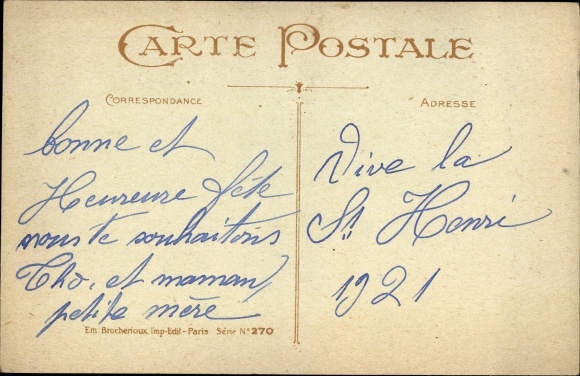 CARTE POSTALE
CORRESPONDANCE
bonne et
Heureure fête
nous te souhaitons
Thò, et maman,
petite mère
Em. Brocherioux, Imp-Edit-Paris Série N° 270
ADRESSE
Vive la
St Henri
1921